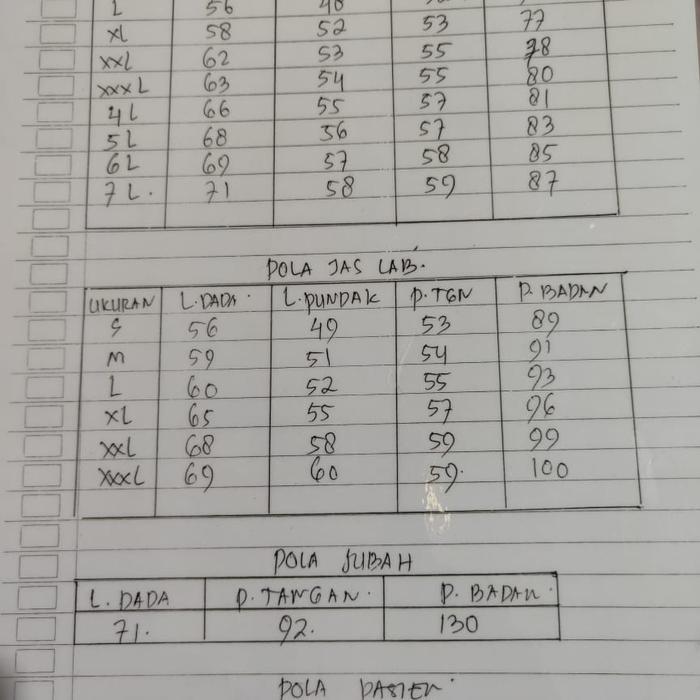 L 56 48
XL 58 52 53 77
XXL 62 53 55 78
XXXL 63 54 55 80
4L 66 55 57 81
5L 68 56 57 83
6L 69 57 58 85
7L. 71 58 59 87
POLA JAS LAB.
UKURAN L.DADA. L.PUNDAK P.TGN P. BADAN
S 56 49 53 89
M 59 51 54 91
L 60 52 55 93
XL 65 55 57 96
XXL 68 58 59 99
XXXL 69 60 59. 100
POLA JUBAH
L. DADA P. TANGAN. P. BADAN.
71. 92. 130
POLA DASTER.